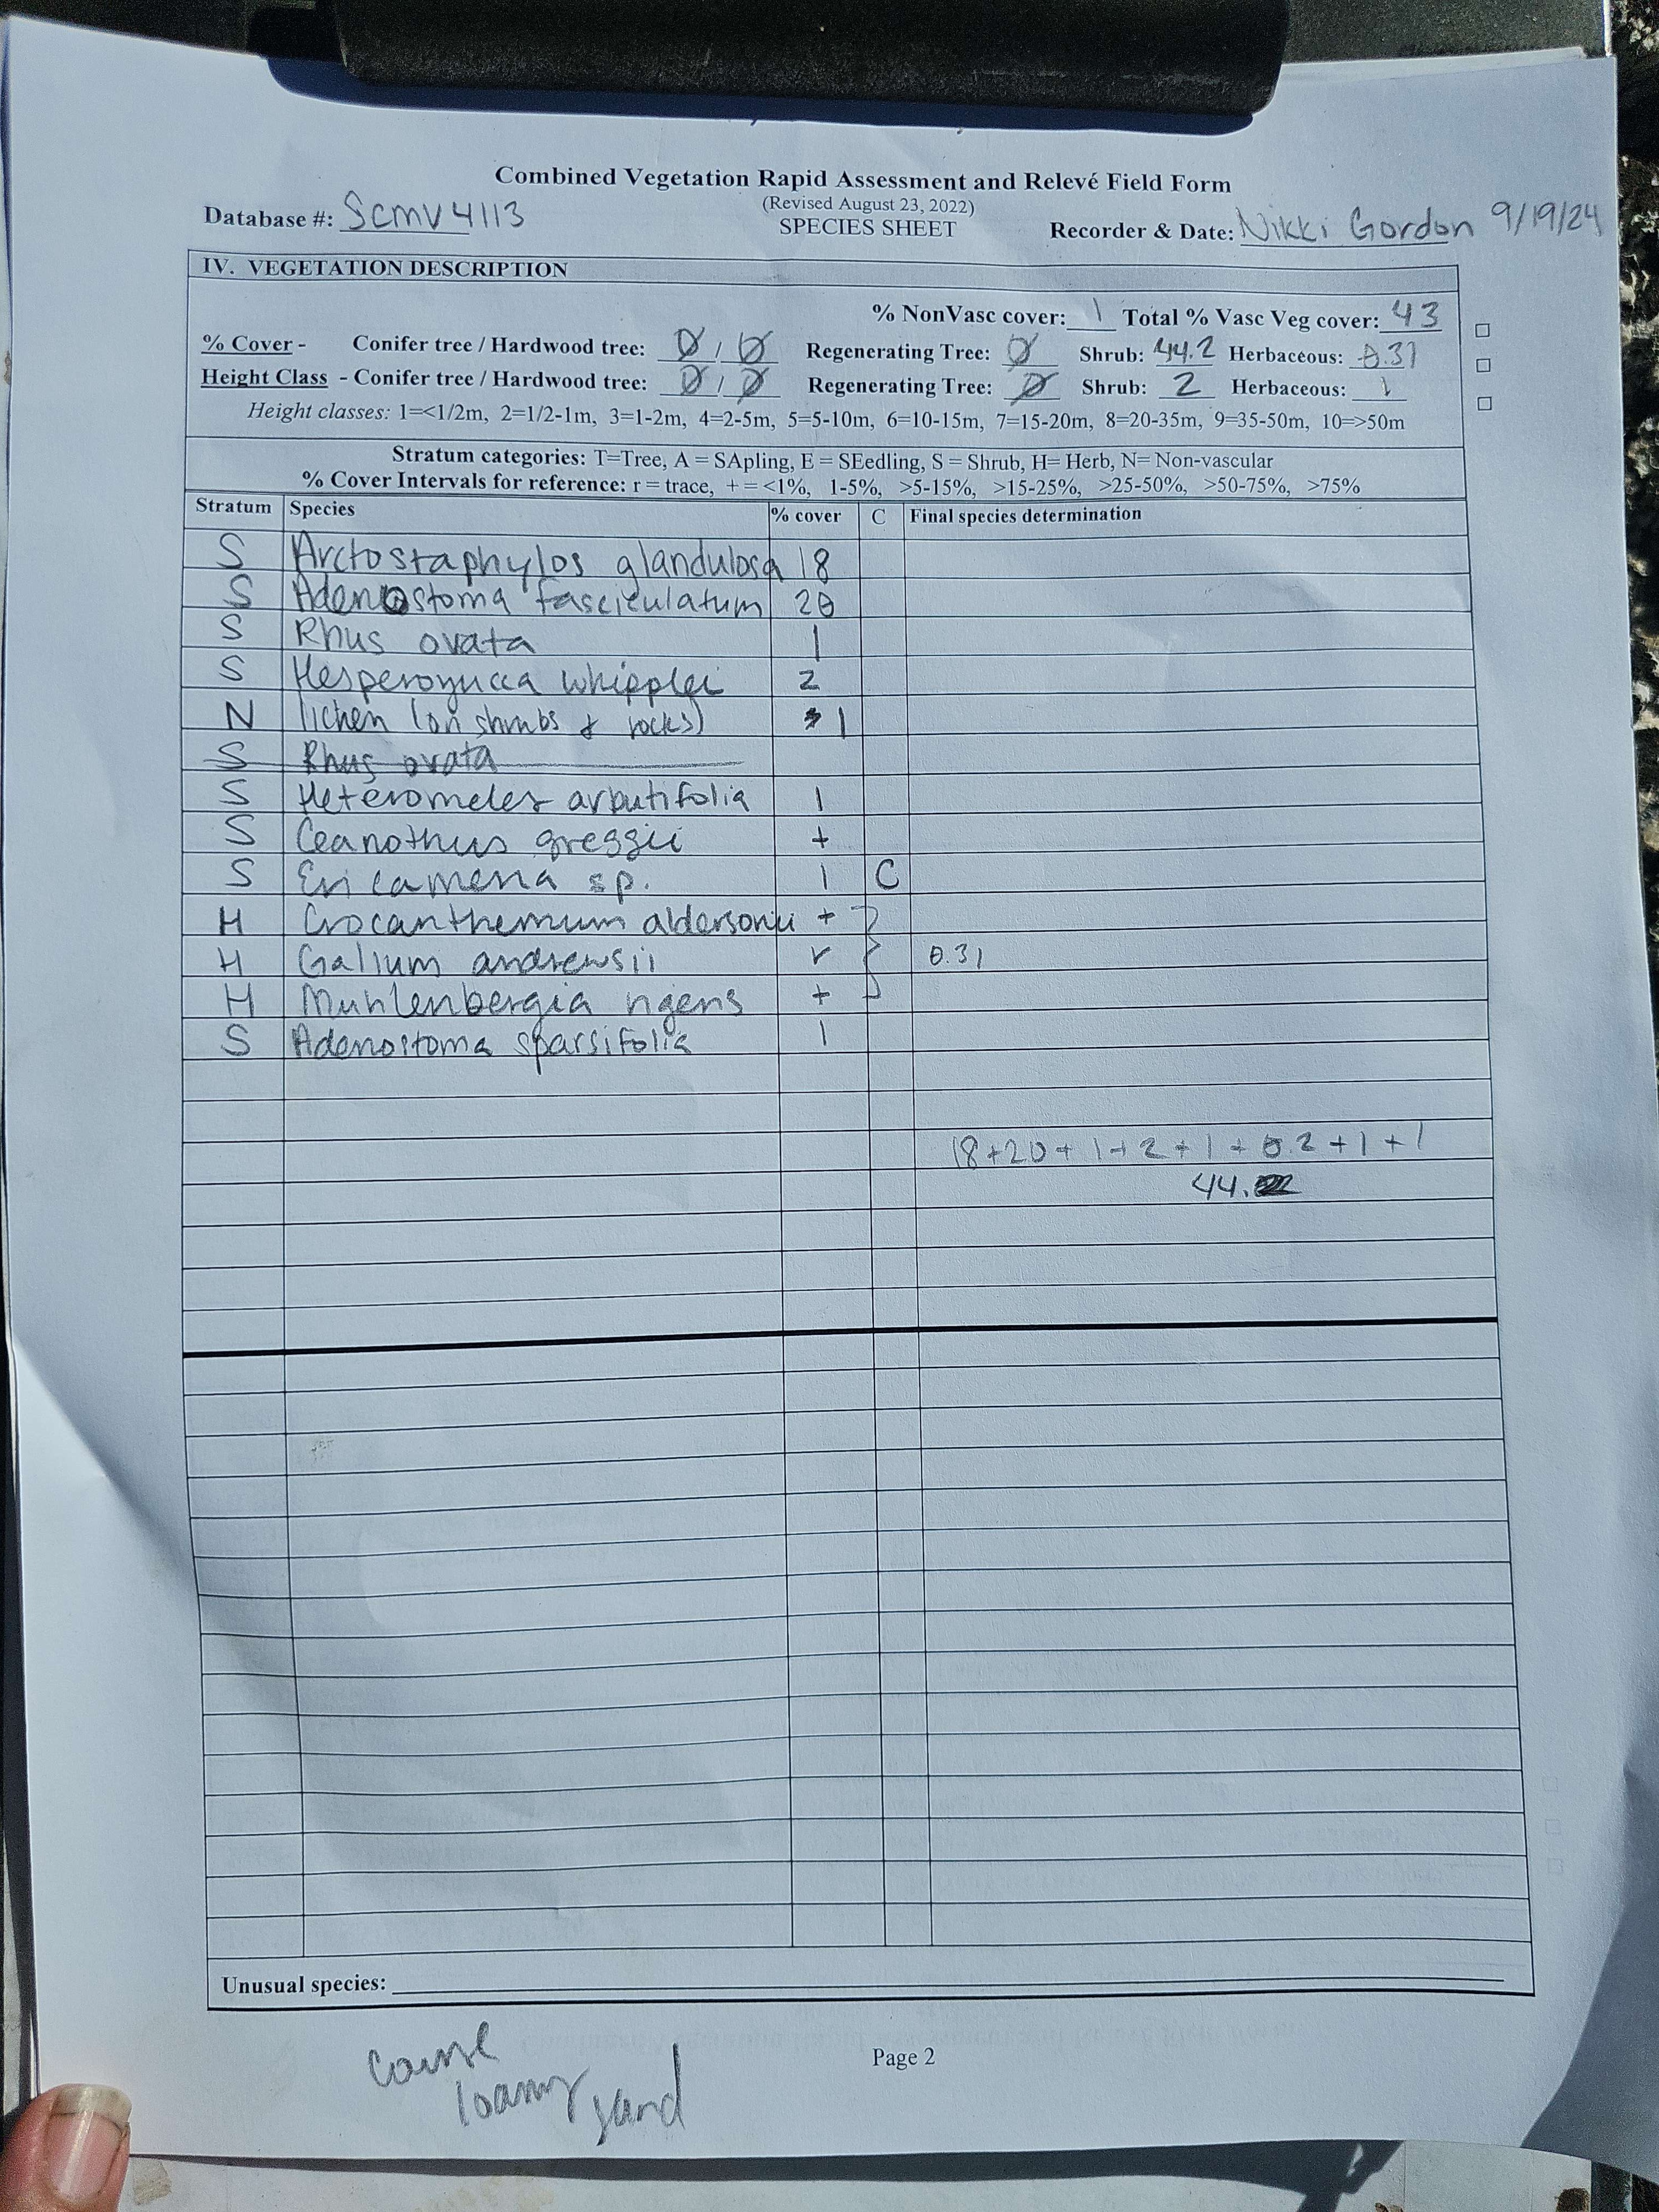 Combined Vegetation Rapid Assessment and Relevé Field Form
(Revised August 23, 2022)
Database #: Scmv4113 SPECIES SHEET Recorder & Date: Nikki Gordon 9/19/24
IV. VEGETATION DESCRIPTION
% NonVasc cover: 1 Total % Vasc Veg cover: 43
% Cover - Conifer tree / Hardwood tree: 0 / 0 Regenerating Tree: 0 Shrub: 44.2 Herbaceous: 0.31
Height Class - Conifer tree / Hardwood tree: 0 / 0 Regenerating Tree: 0 Shrub: 2 Herbaceous: 1
Height classes: 1=<1/2m, 2=1/2-1m, 3=1-2m, 4=2-5m, 5=5-10m, 6=10-15m, 7=15-20m, 8=20-35m, 9=35-50m, 10=>50m
Stratum categories: T=Tree, A = SApling, E = SEedling, S = Shrub, H= Herb, N= Non-vascular
% Cover Intervals for reference: r = trace, + = <1%, 1-5%, >5-15%, >15-25%, >25-50%, >50-75%, >75%
Stratum Species % cover C Final species determination
S Arctostaphylos glandulosa 18
S Adenostoma fasciculatum 20
S Rhus ovata 1
S Hesperoyucca whipplei 2
N lichen (on shrubs & rocks) 1
S Rhus ovata
S Heteromeles arbutifolia 1
S Ceanothus greggii +
S Ericameria sp. 1 C
H Crocanthemum aldersonii +
H Galium andrewsii r 0.31
H Muhlenbergia rigens +
S Adenostoma sparsifolia 1
18+20+1+2+1+0.2+1+1
44.2
Unusual species:
Page 2
coarse
loamy sand